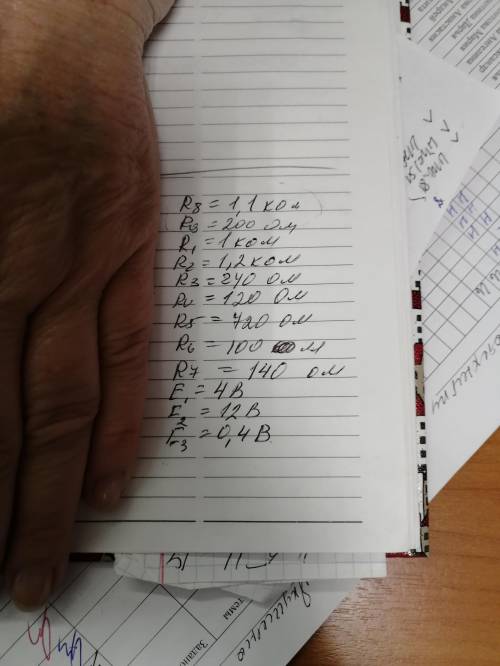 R8 = 1,1 ком
R9 = 200 ом
R1 = 1 ком
R2 = 1,2 ком
R3 = 240 ом
R4 = 120 Ом
R5 = 720 ом
R6 = 100 ом
R7 = 140 ом
E1 = 4В
E2 = 12 В
E3 = 0,4 В